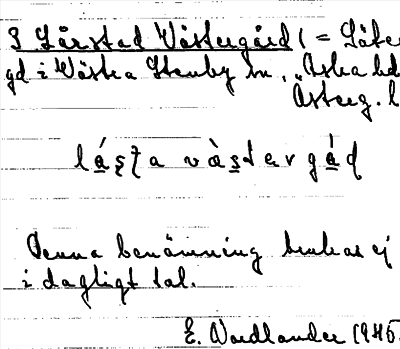 S Lårstad Västergård (= Såte
gd i Västra Stenby sn, Aska hd
Österg. l
lásta vàstergád
Denna benämning brukas ej
i dagligt tal.
E. Nordlander 1945.